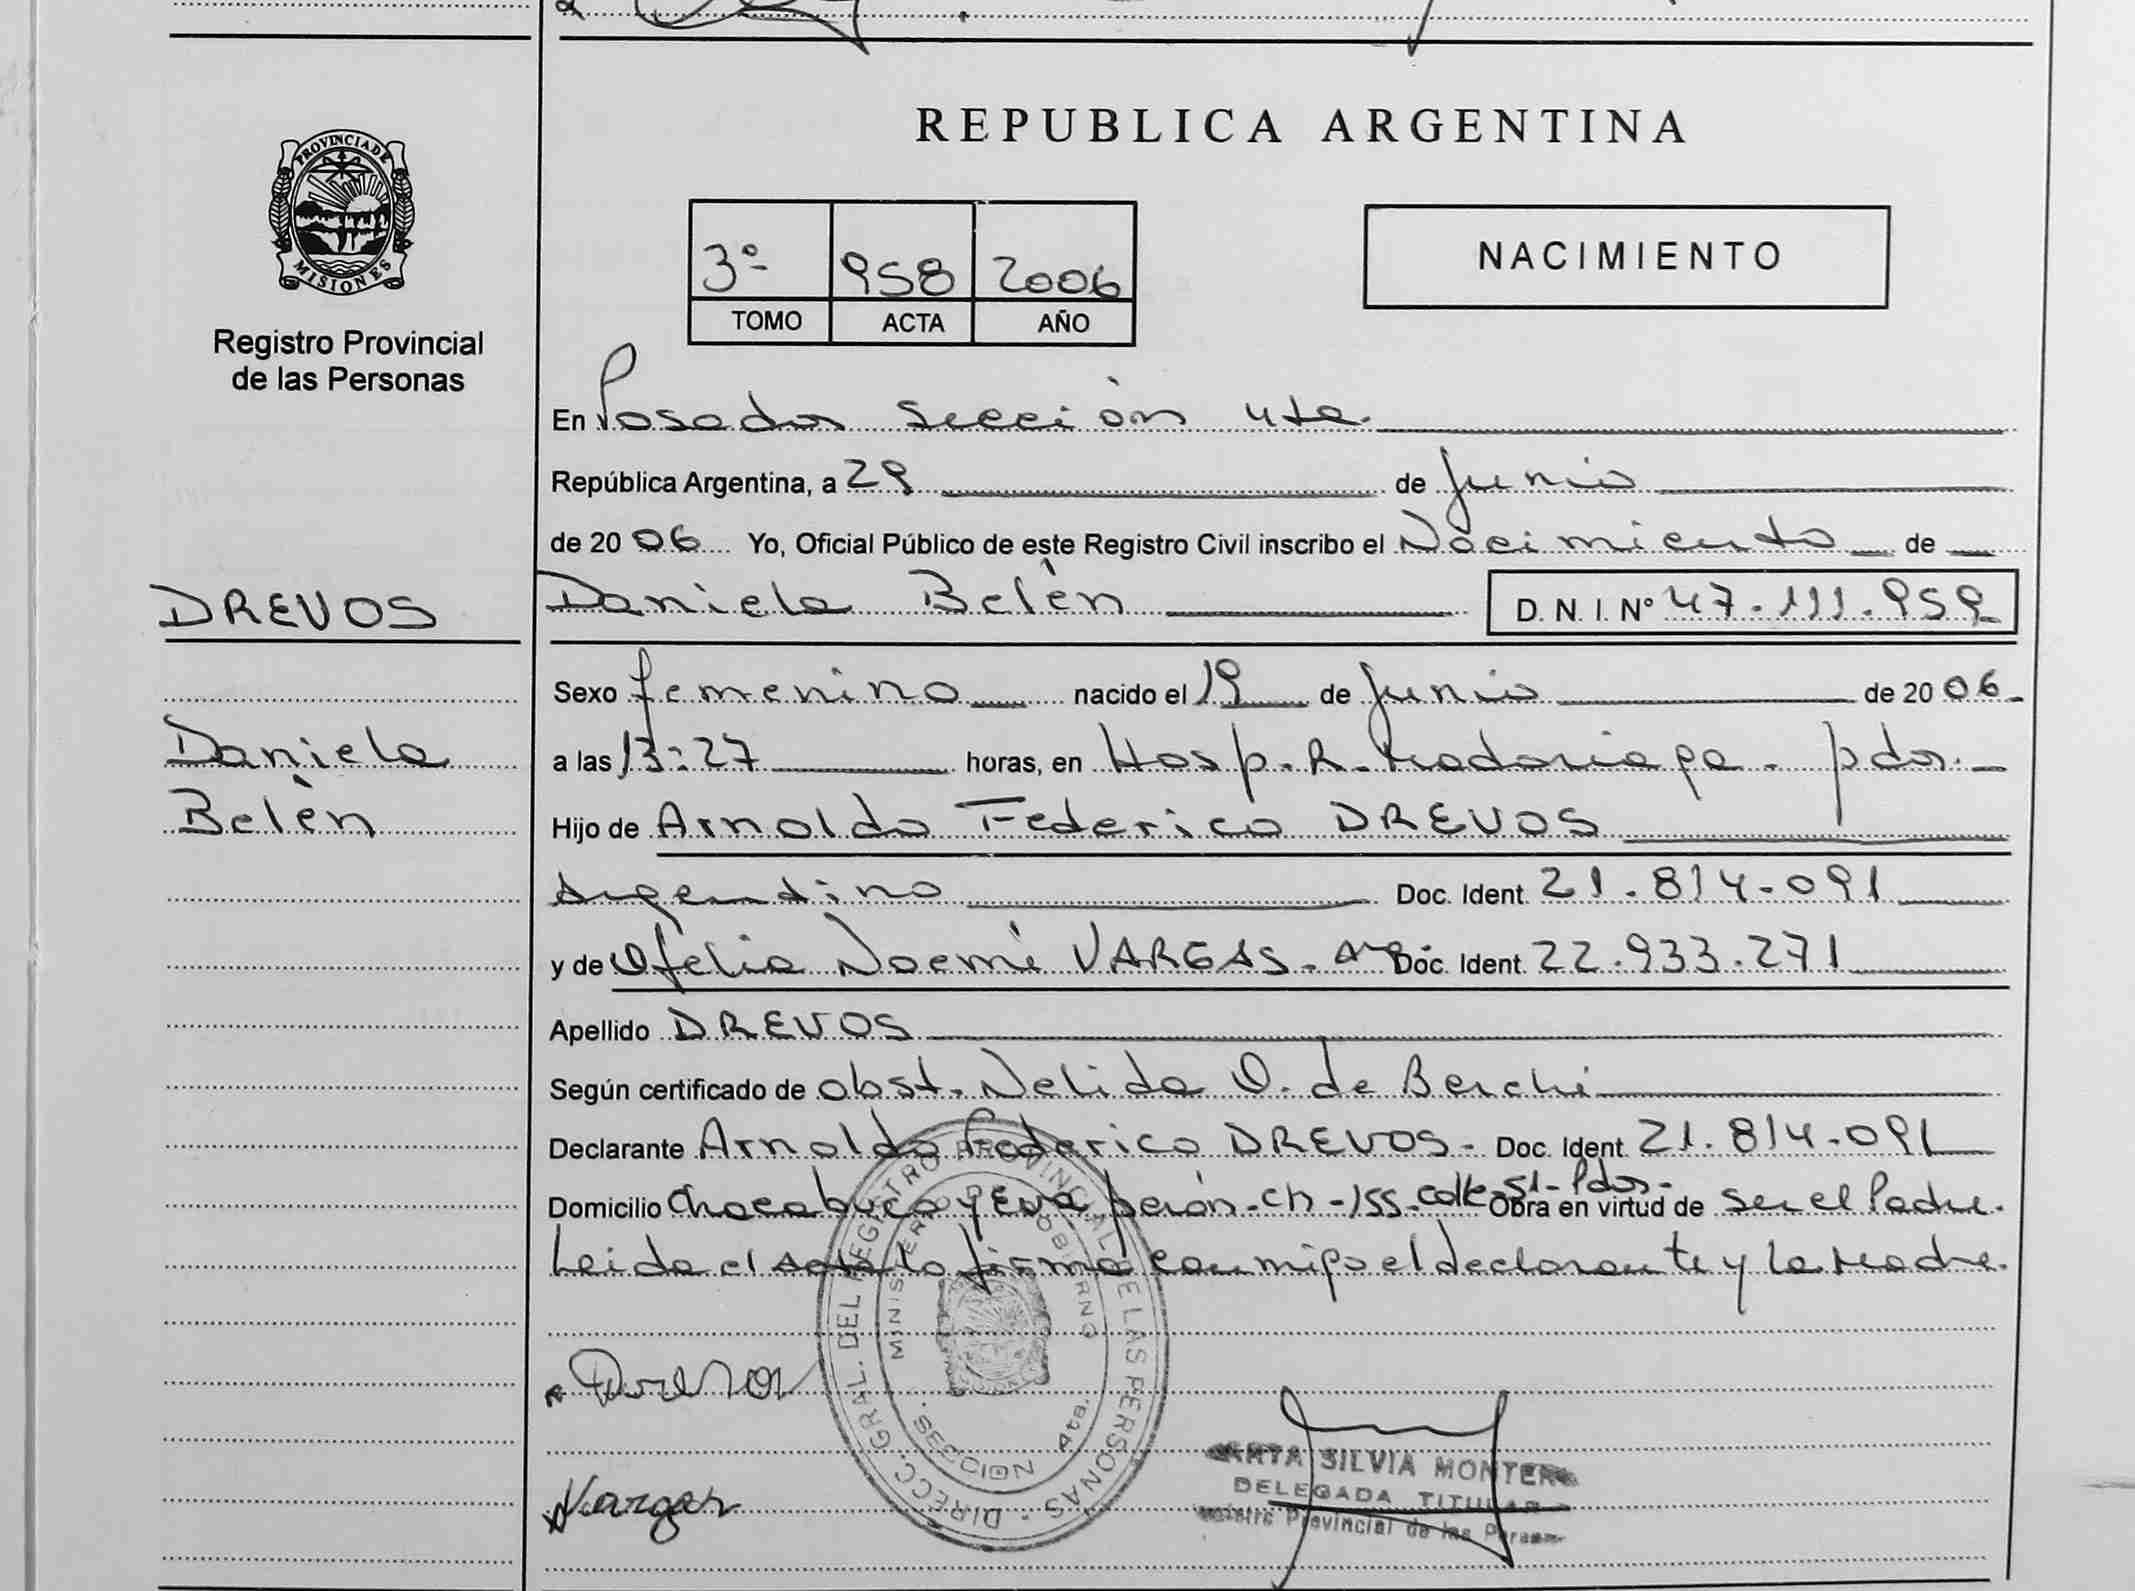 REPUBLICA ARGENTINA
PROVINCIA DE
MISIONES
Registro Provincial
de las Personas
3º 958 2006
TOMO ACTA AÑO
NACIMIENTO
En Posadas sección 4ta.
República Argentina, a 29 de Junio
de 2006 Yo, Oficial Público de este Registro Civil inscribo el Nacimiento de
DREVOS
Daniela Belén D. N. I. Nº 47.111.959
Sexo femenino nacido el 19 de Junio de 2006
Daniela
Belén
a las 13:27 horas, en Hosp. R. Madariaga. pdas.
Hijo de Arnoldo Federico DREVOS
argentino Doc. Ident. 21.814.091
y de Ofelia Noemí VARGAS. Doc. Ident. 22.933.271
Apellido DREVOS
Según certificado de obst. Nelida O. de Berchi
Declarante Arnoldo Federico DREVOS. Doc. Ident. 21.814.091
Domicilio Chacabuco y Eva perón. ch-155. Pdas. Obra en virtud de ser el Padre.
Leida el acta lo firma conmigo el declarante y la Madre.
DIRECC. GRAL. DEL REGISTRO PROVINCIAL DE LAS PERSONAS
MINISTERIO DE GOBIERNO
SECCION 4ta.
Drevos
Vargas
SILVIA MONTERO
DELEGADA TITULAR
Provincial de las